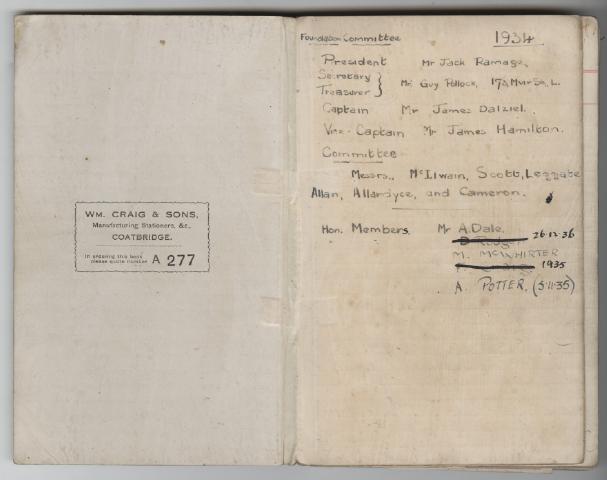 WM. CRAIG & SONS,
Manufacturing Stationers, &c.,
COATBRIDGE.
In ordering this book
please quote number A 277
Foundation Committee 1934
President Mr Jack Ramage.
Secretary
Treasurer } Mr Guy Pollock, 173, Muir St, L.
Captain Mr James Dalziel.
Vice-Captain Mr James Hamilton.
Committee
Messrs., McIlwain, Scott, Leggate
Allan, Allardyce, and Cameron.
Hon. Members. Mr A. Dale.
26.12.36
M. McWHIRTER
1935
A. POTTER. (5.11.35)